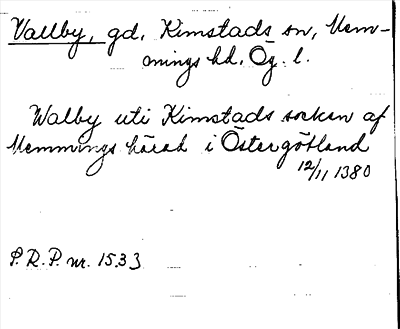 Vallby, gd, Kimstads sn, Mem-
mings hd, Ög. l.
Walby uti Kimstads socken af
Memmings härad i Östergötland
12/11 1380
P.R.P. nr. 1533